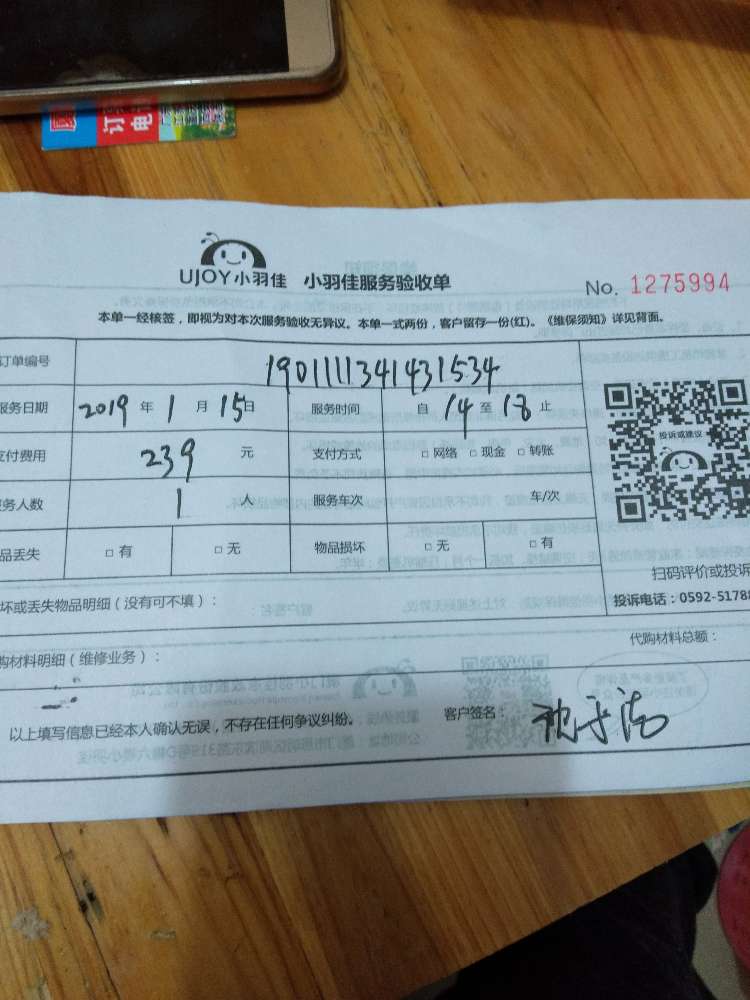 订电
UJOY小羽佳 小羽佳服务验收单
No. 1275994
本单一经核签，即视为对本次服务验收无异议。本单一式两份，客户留存一份(红)。《维保须知》详见背面。
订单编号 1901111341431534
服务日期 2019 年 1 月 15日 服务时间 自 14 至 18 止
支付费用 239 元 支付方式 □ 网络 □ 现金 □ 转账
务人数 1 人 服务车次 车/次
品丢失 □ 有 □ 无 物品损坏 □ 无 □ 有
投诉或建议
扫码评价或投诉
投诉电话：0592-5178
坏或丢失物品明细（没有可不填）：
代购材料总额：
购材料明细（维修业务）：
以上填写信息已经本人确认无误，不存在任何争议纠纷。 客户签名：